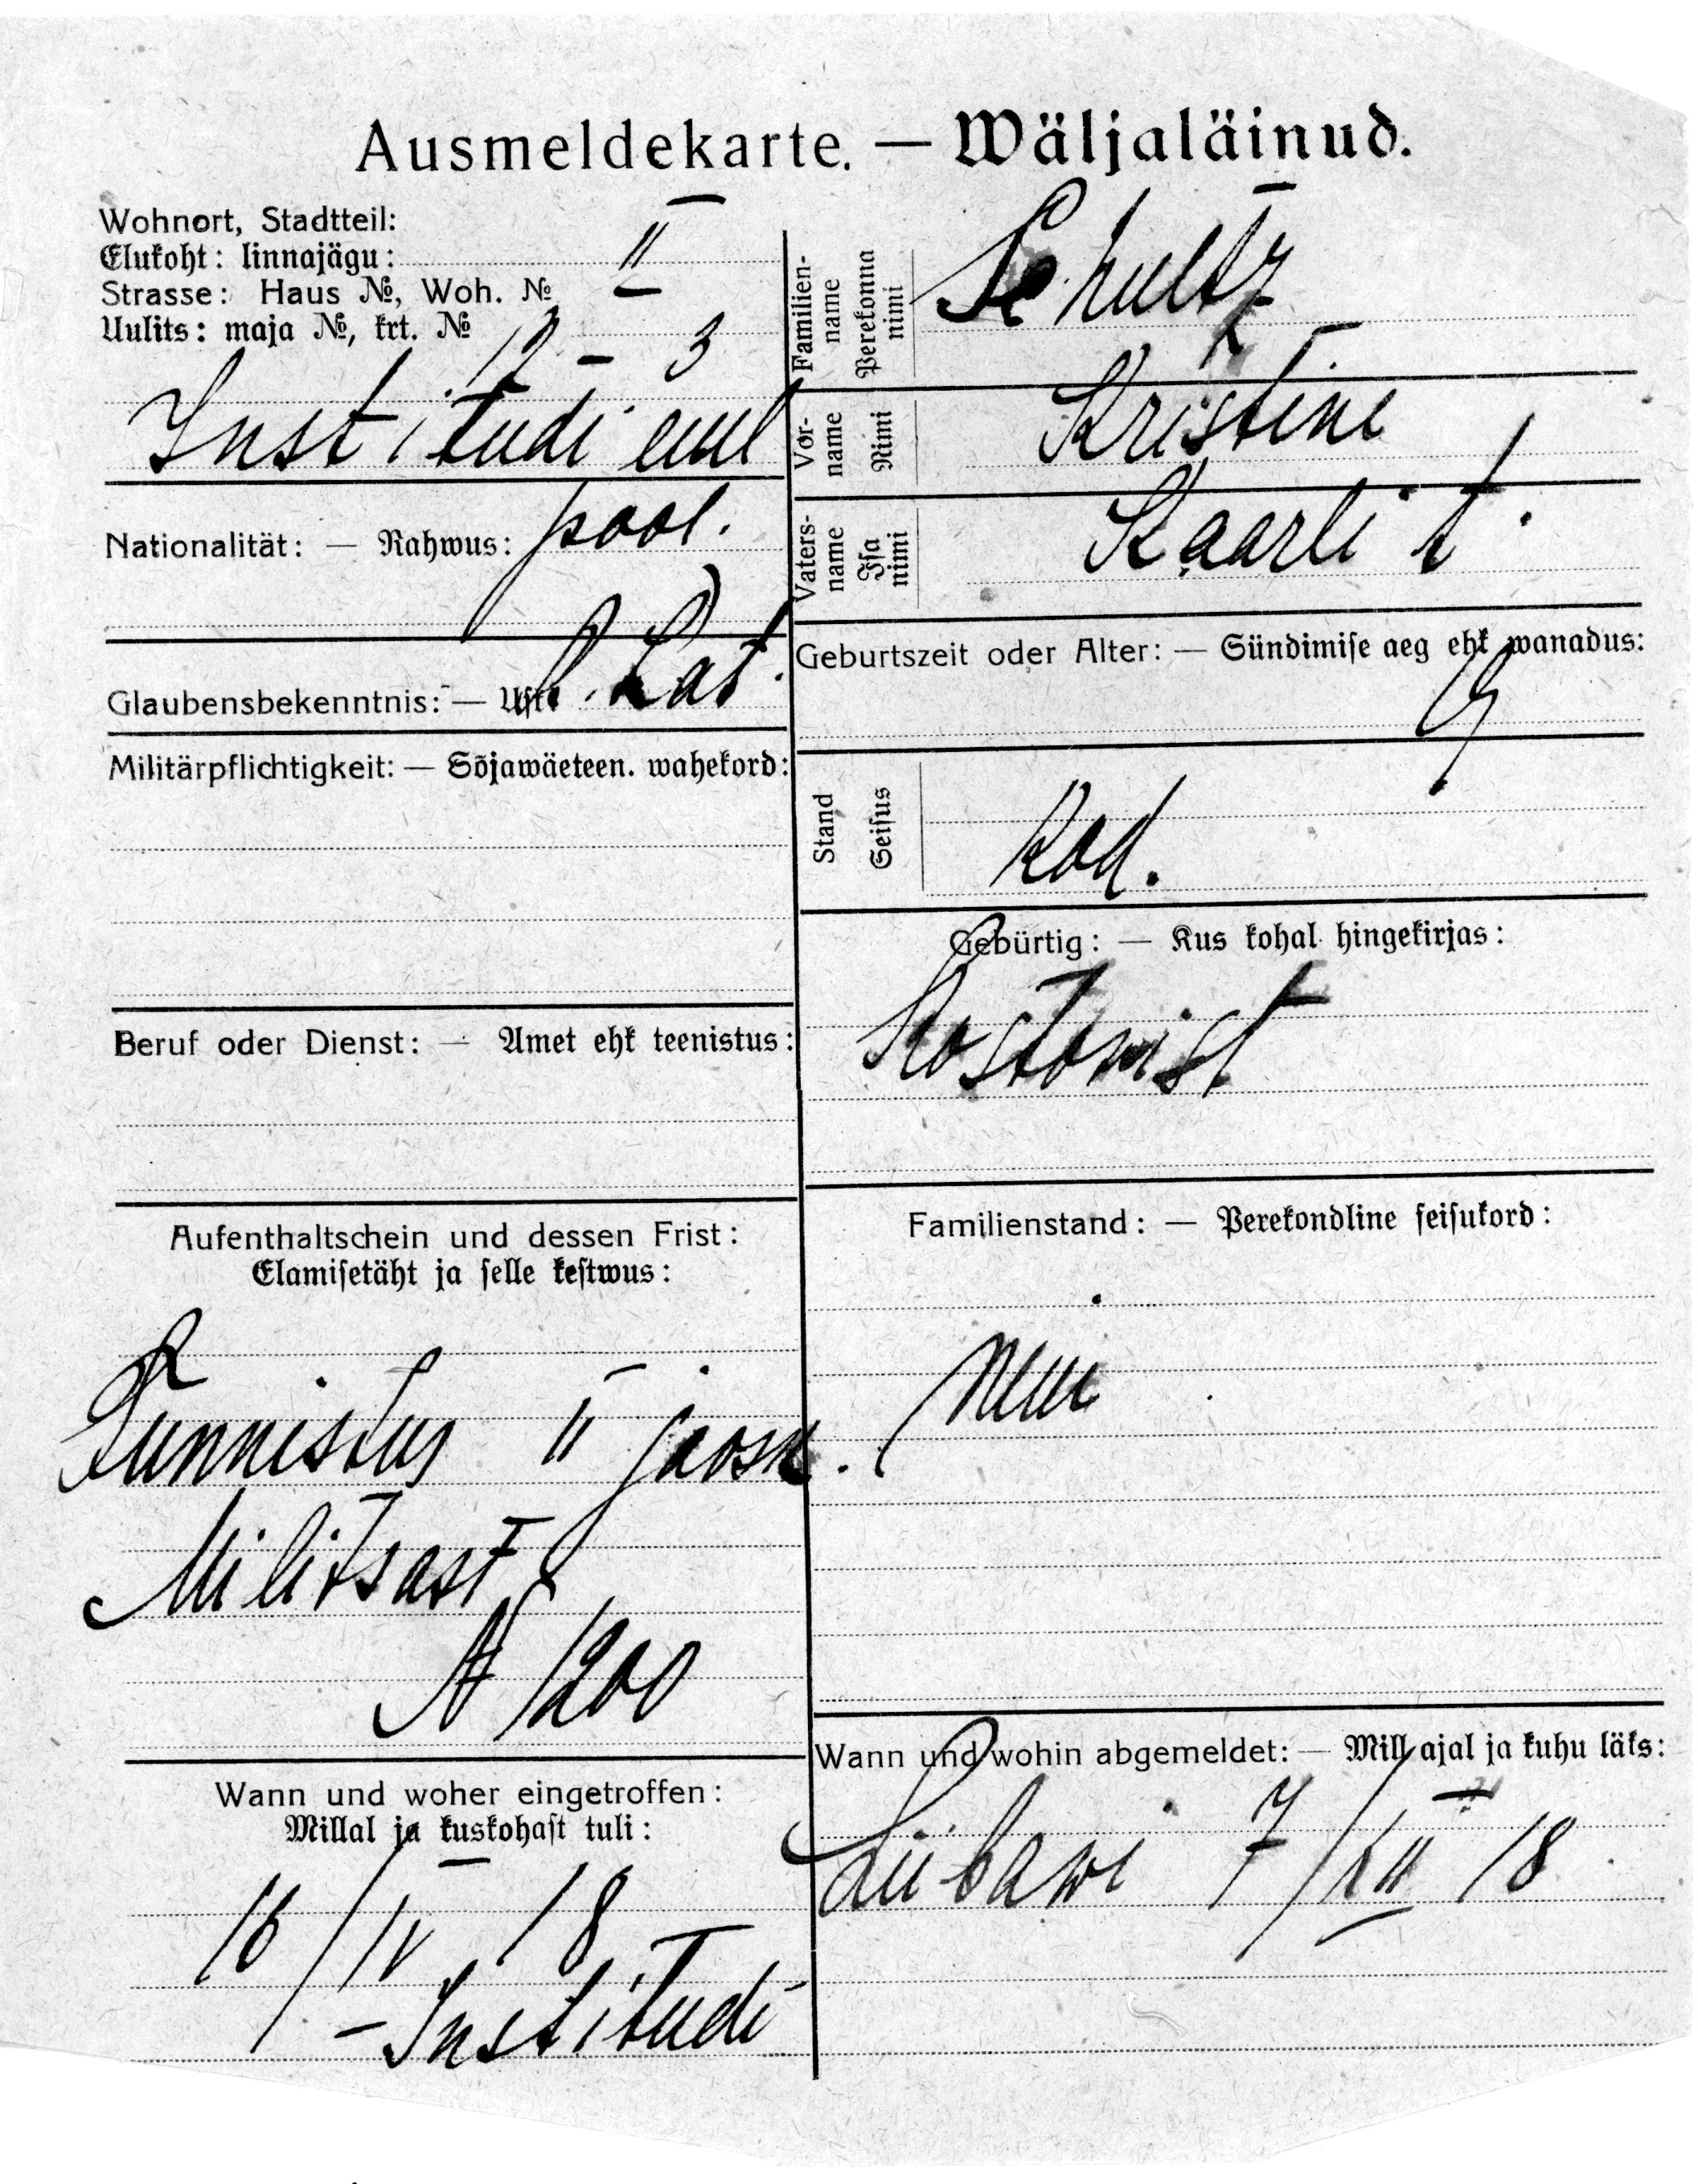 Ausmeldekarte. — Wäljaläinud.
Wohnort, Stadtteil:
Elukoht: linnajägu: II
Strasse: Haus №, Woh. №
Uulits: maja №, krt. № 12 - 3
Institudi
Nationalität: — Rahwus: pool.
Glaubensbekenntnis: — Usk: Kat.
Militärpflichtigkeit: — Sõjawäeteen. wahekord:
Beruf oder Dienst: — Amet ehk teenistus:
Aufenthaltschein und dessen Frist:
Elamisetäht ja selle kestwus:
Tunnistus II jaosk.
Militsast
N 1200
Wann und woher eingetroffen:
Millal ja kuskohast tuli:
16/IV 18
- Institudi
Familien-name
Perekonna nimi
Schultz
Vor-name
Nimi
Kristine
Vaters-name
Isa nimi
Kaarli t.
Geburtszeit oder Alter: — Sündimise aeg ehk wanadus:
19
Stand
Seisus
Kod.
Gebürtig: — Kus kohal hingekirjas:
Rostowist
Familienstand: — Perekondline seisukord:
Wann und wohin abgemeldet: — Mill ajal ja kuhu läks:
Liibawi 7/XII 18